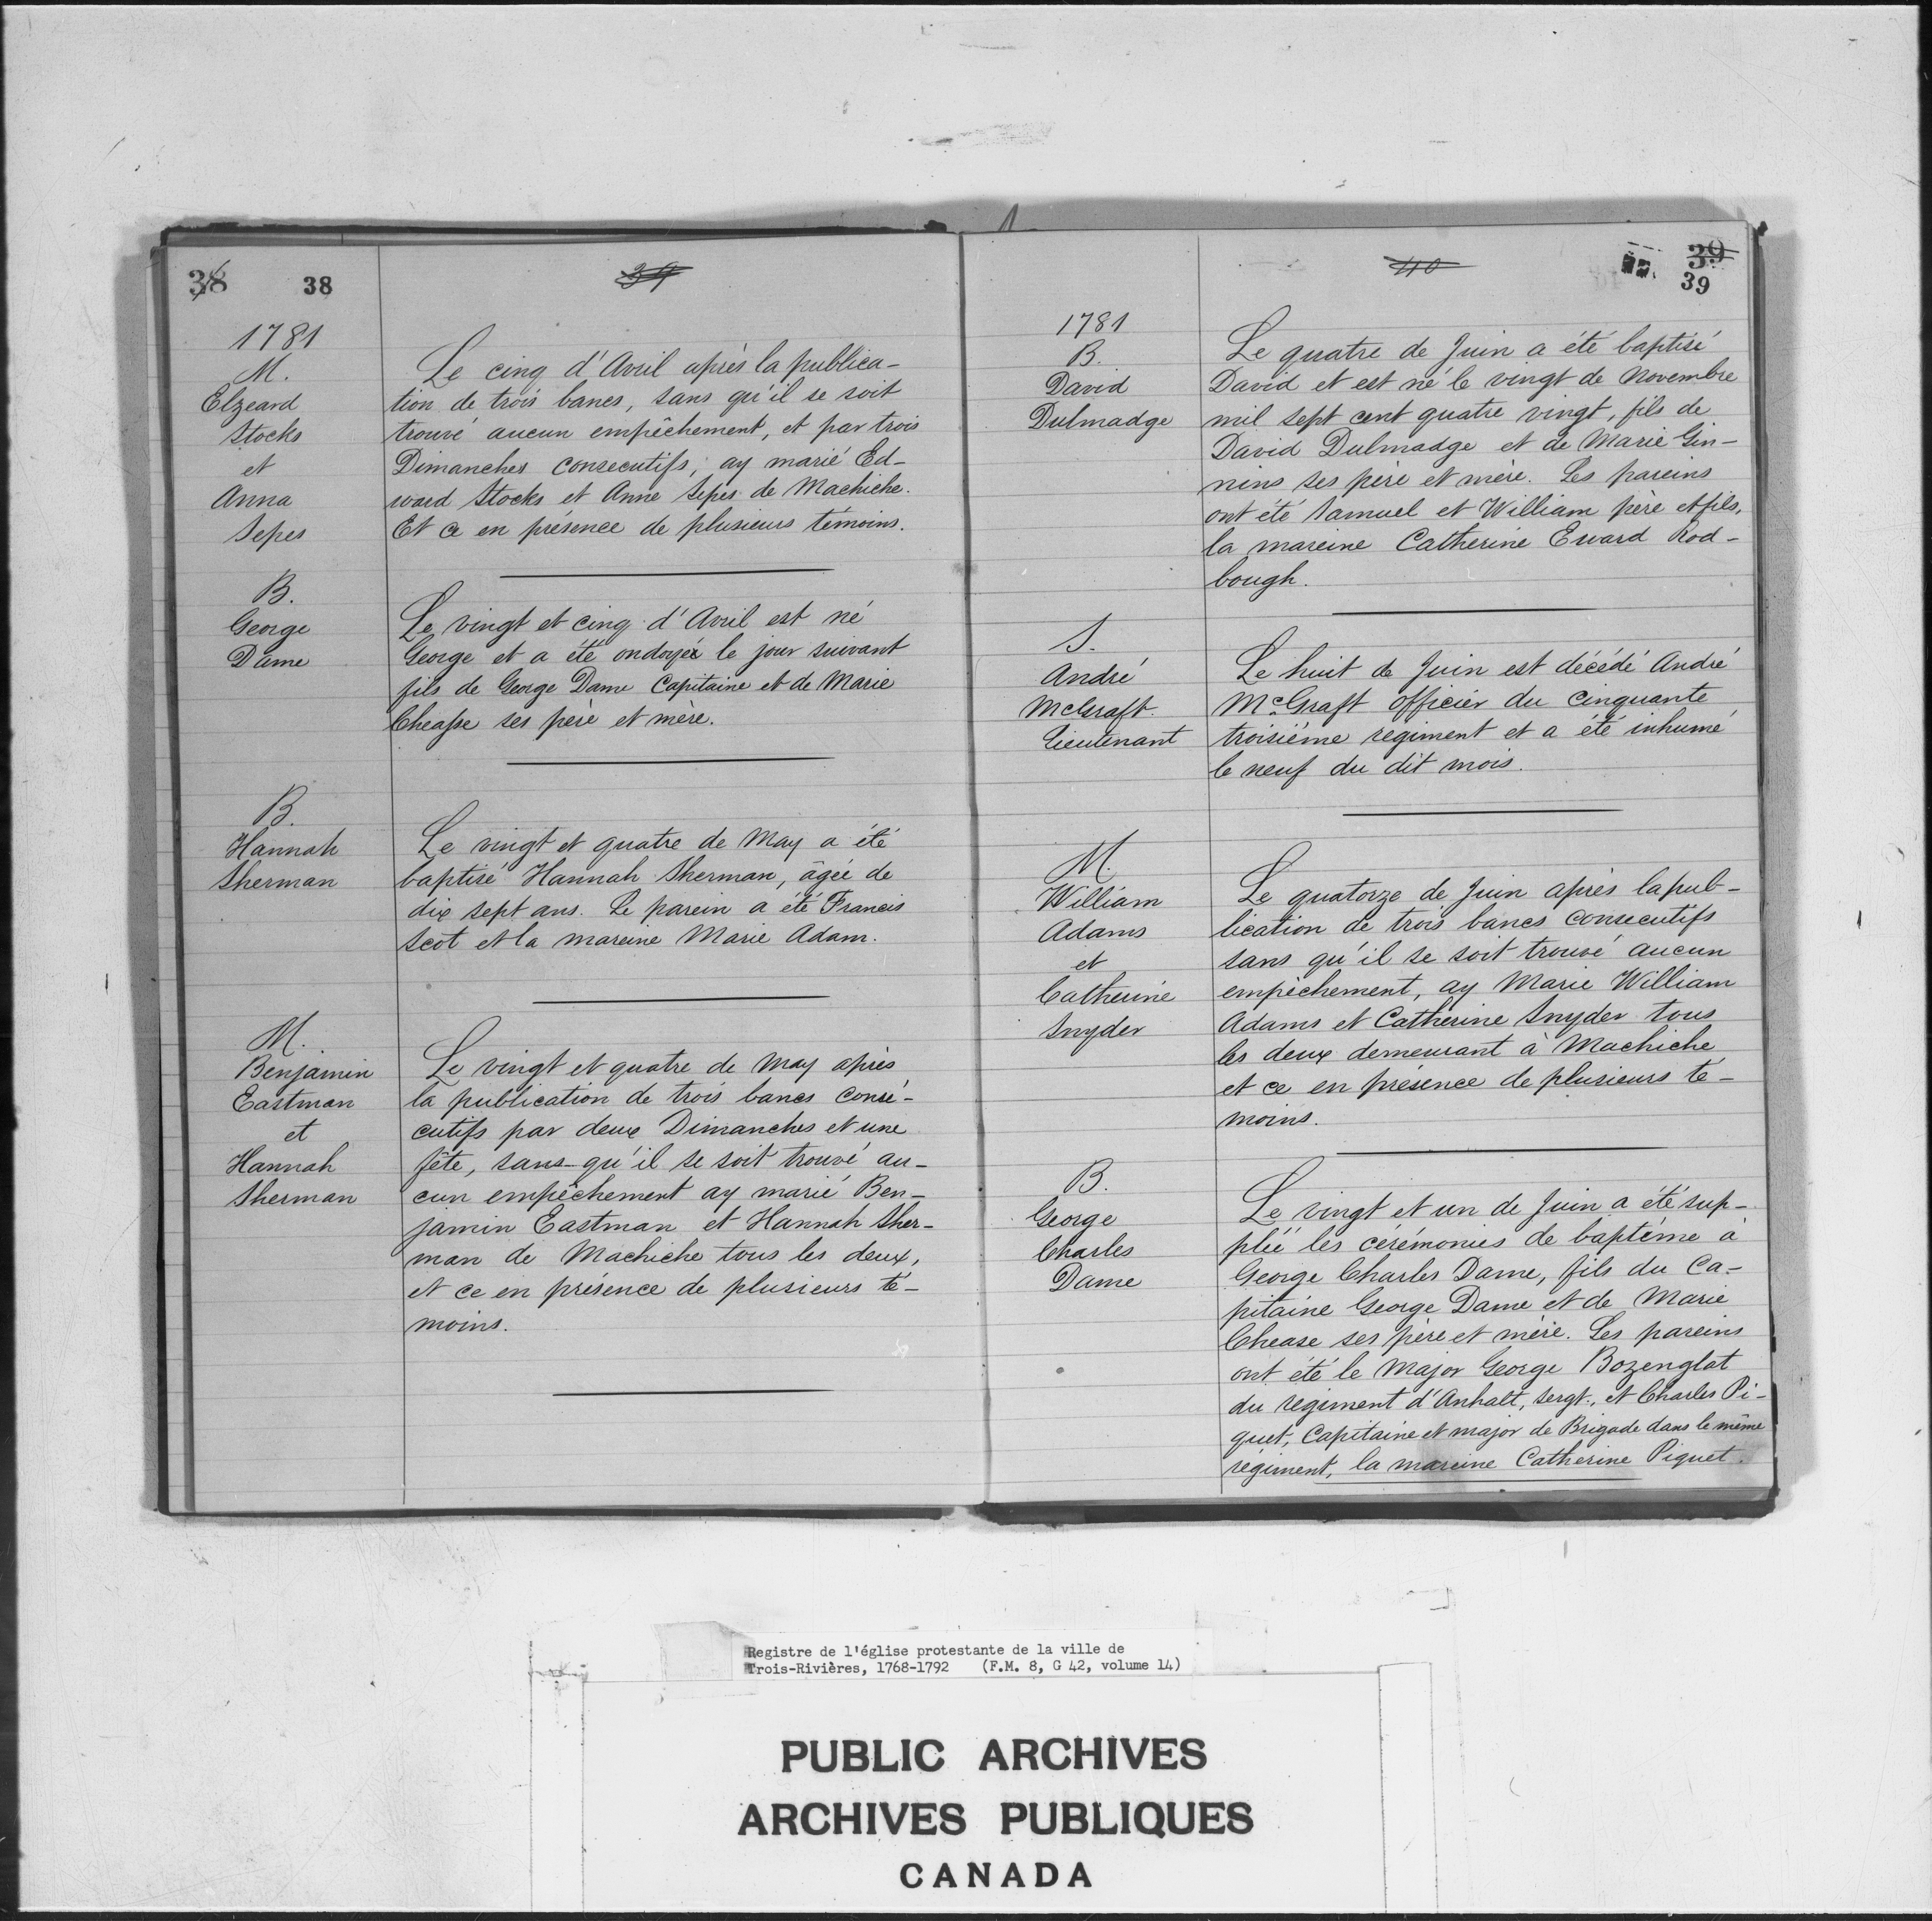 38 38
39
1781
M.
Elzeard
Stocks
et
Anna
Sepes
Le cinq d'Avril après la publica-
tion de trois bancs, sans qu'il se soit
trouvé aucun empêchement, et par trois
Dimanches consecutifs, ay marié Ed-
ward Stocks et Anne Sepes de Machiche.
Et ce en présence de plusieurs témoins.
B.
George
Dame
Le vingt et cinq d'Avril est né
George et a été ondoyé le jour suivant
fils de George Dame Capitaine et de Marie
Cheasse ses père et mère.
B.
Hannah
Sherman
Le vingt et quatre de May a été
baptisé Hannah Sherman, âgée de
dix sept ans. Le parein a été Francis
Scot et la mareine Marie Adam.
M.
Benjamin
Eastman
et
Hannah
Sherman
Le vingt et quatre de May après
la publication de trois bancs consé-
cutifs par deux Dimanches et une
fête, sans qu'il se soit trouvé au-
cun empêchement ay marié Ben-
jamin Eastman et Hannah Sher-
man de Machiche tous les deux,
et ce en présence de plusieurs té-
moins.
40
39
39
1781
B.
David
Dulmadge
Le quatre de Juin a été baptisé
David et est né le vingt de Novembre
mil sept cent quatre vingt, fils de
David Dulmadge et de Marie Gin-
nins ses père et mère. Les pareins
ont été Samuel et William père et fils,
la mareine Catherine Eward Rod-
bough.
S.
André
McGraft
Lieutenant
Le huit de Juin est décédé André
McGraft officier du cinquante
troisième régiment et a été inhumé
le neuf du dit mois.
M.
William
Adams
et
Catherine
Snyder
Le quatorze de Juin après la pub-
lication de trois bancs consecutifs
sans qu'il se soit trouvé aucun
empêchement, ay Marié William
Adams et Catherine Snyder tous
les deux demeurant à Machiche
et ce en présence de plusieurs té-
moins.
B.
George
Charles
Dame
Le vingt et un de Juin a été sup-
pléé les cérémonies de baptême à
George Charles Dame, fils du Ca-
pitaine George Dame et de Marie
Chease ses père et mère. Les pareins
ont été le Major George Bozenglat
du régiment d'Anhalt, Sergt., et Charles Pi-
quet, Capitaine et major de Brigade dans le même
régiment, la mareine Catherine Piquet.
Registre de l'église protestante de la ville de
Trois-Rivières, 1768-1792 (F.M. 8, G 42, volume 14)
PUBLIC ARCHIVES
ARCHIVES PUBLIQUES
CANADA